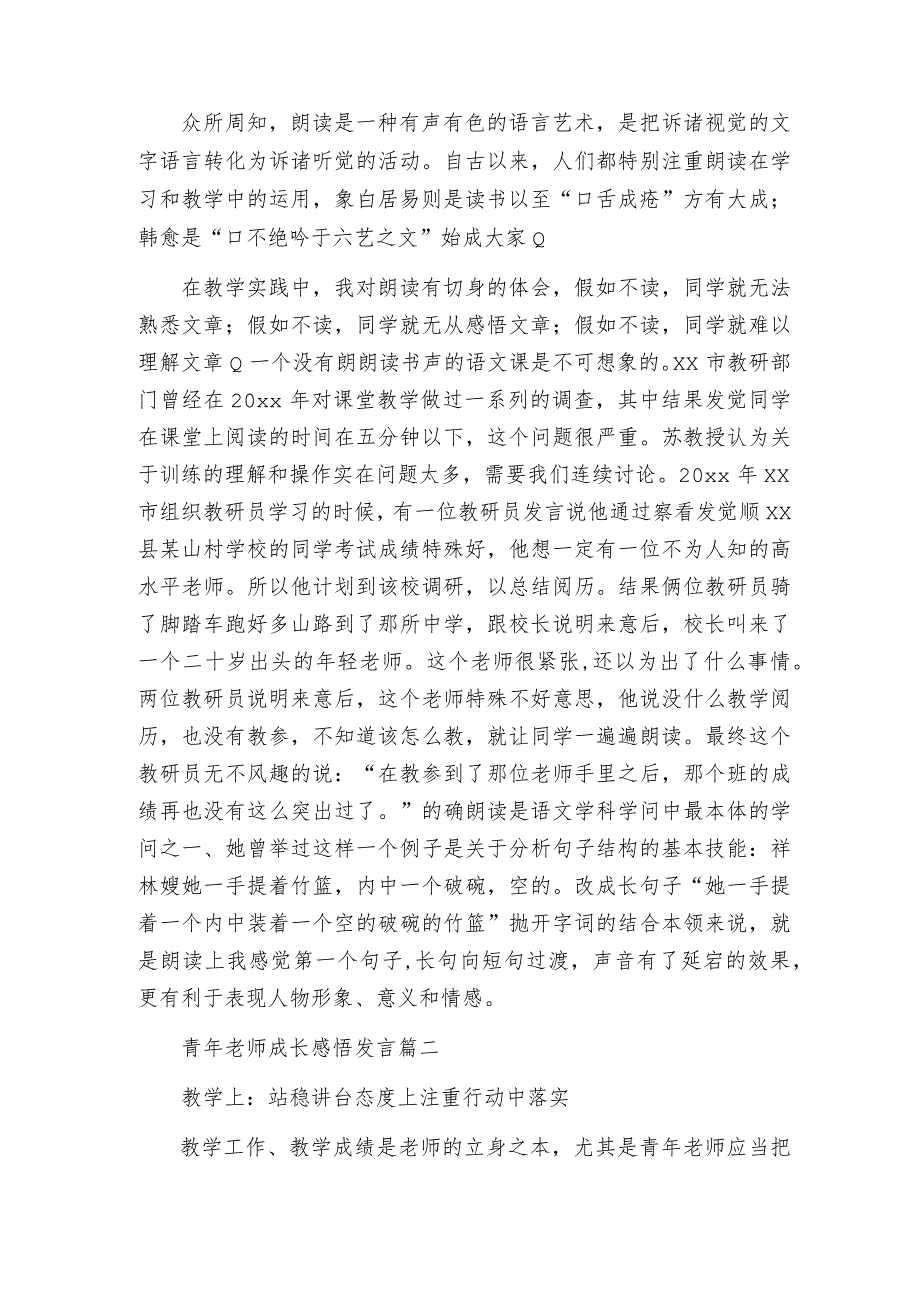 众所周知，朗读是一种有声有色的语言艺术，是把诉诸视觉的文
字语言转化为诉诸听觉的活动。自古以来，人们都特别注重朗读在学
习和教学中的运用，象白居易则是读书以至“口舌成疮”方有大成；
韩愈是“口不绝吟于六艺之文”始成大家Q
在教学实践中，我对朗读有切身的体会，假如不读，同学就无法
熟悉文章；假如不读，同学就无从感悟文章；假如不读，同学就难以
理解文章Q一个没有朗朗读书声的语文课是不可想象的。XX市教研部
门曾经在20xx年对课堂教学做过一系列的调查，其中结果发觉同学
在课堂上阅读的时间在五分钟以下，这个问题很严重。苏教授认为关
于训练的理解和操作实在问题太多，需要我们连续讨论。20xx年XX
市组织教研员学习的时候，有一位教研员发言说他通过察看发觉顺XX
县某山村学校的同学考试成绩特殊好，他想一定有一位不为人知的高
水平老师。所以他计划到该校调研，以总结阅历。结果俩位教研员骑
了脚踏车跑好多山路到了那所中学，跟校长说明来意后，校长叫来了
一个二十岁出头的年轻老师。这个老师很紧张,还以为出了什么事情。
两位教研员说明来意后，这个老师特殊不好意思，他说没什么教学阅
历，也没有教参，不知道该怎么教，就让同学一遍遍朗读。最终这个
教研员无不风趣的说：“在教参到了那位老师手里之后，那个班的成
绩再也没有这么突出过了。”的确朗读是语文学科学问中最本体的学
问之一、她曾举过这样一个例子是关于分析句子结构的基本技能：祥
林嫂她一手提着竹篮，内中一个破碗，空的。改成长句子“她一手提
着一个内中装着一个空的破碗的竹篮”抛开字词的结合本领来说，就
是朗读上我感觉第一个句子,长句向短句过渡，声音有了延宕的效果，
更有利于表现人物形象、意义和情感。
青年老师成长感悟发言篇二
教学上：站稳讲台态度上注重行动中落实
教学工作、教学成绩是老师的立身之本，尤其是青年老师应当把